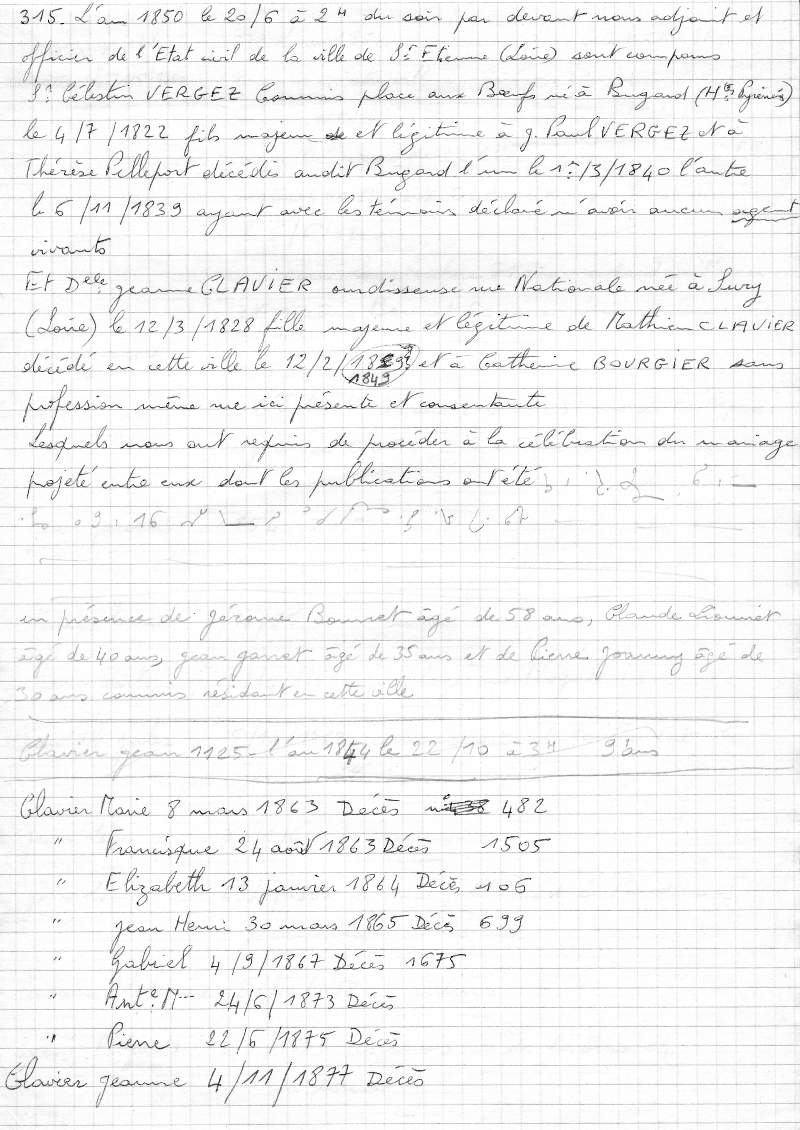 315. L'an 1850 le 20/6 à 2H du soir par devant nous adjoint et
officier de l'Etat civil de la ville de St Etienne (Loire) sont comparus
Sr Célestin VERGEZ Commis place aux Bœufs né à Bugard (Htes Pyrénées)
le 4/7/1822 fils majeur et légitime à j. Paul VERGEZ et à
Thérèse Pelleport décédés audit Bugard l'un le 1er/3/1840 l'autre
le 6/11/1839 ayant avec les témoins déclaré n'avoir aucun
vivants
Et Delle jeanne CLAVIER ourdisseuse rue Nationale née à Sury
(Loire) le 12/3/1828 fille majeure et légitime de Mathieu CLAVIER
décédé en cette ville le 12/2/ et à Catherine BOURGIER sans
1849
profession même rue ici présente et consentante
Lesquels nous ont requis de procéder à la célébration du mariage
projeté entre eux dont les publications ont été
en présence de Jérôme Bonnet âgé de 58 ans, Claude Liounet
âgé de 40 ans, jean garret âgé de 35 ans et de Pierre Joanny âgé de
30 ans commis résidant en cette ville
Clavier jean 1125 - l'an 1844 le 22/10 à 3H 9 ans
Clavier Marie 8 mars 1863 Décès n° 482
" Francisque 24 août 1863 Décès 1505
" Elizabeth 13 janvier 1864 Décès 106
" jean Henri 30 mars 1865 Décès 699
" Gabriel 4/9/1867 Décès 1675
" Ante M... 24/6/1873 Décès
" Pierre 22/6/1875 Décès
Clavier jeanne 4/11/1877 Décès